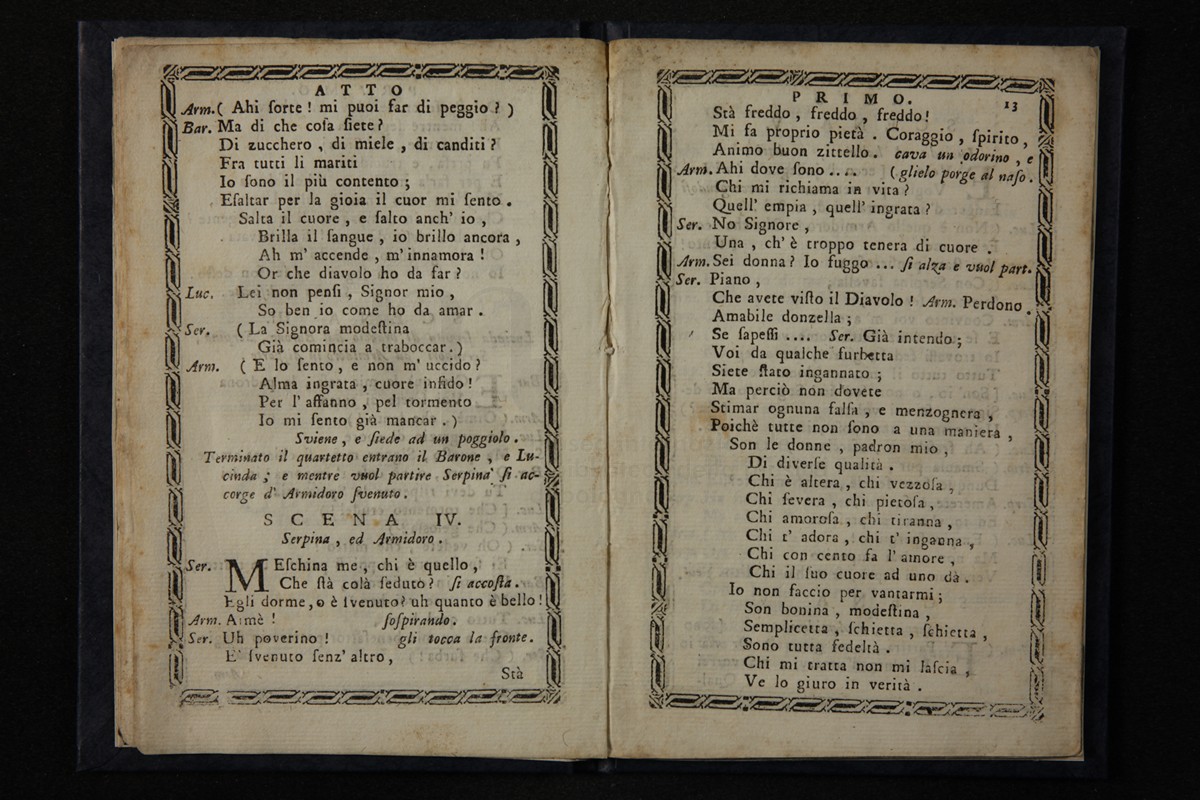 ATTO
Arm. ( Ahi ſorte ! mi puoi far di peggio ? )
Bar. Ma di che coſa ſiete ?
Di zucchero , di miele , di canditi ?
Fra tutti li mariti
Io ſono il più contento ;
Eſaltar per la gioia il cuor mi ſento .
Salta il cuore , e ſalto anch' io ,
Brilla il ſangue , io brillo ancora ,
Ah m' accende , m' innamora !
Or che diavolo ho da far ?
Luc. Lei non penſi , Signor mio ,
So ben io come ho da amar .
Ser. ( La Signora modeſtina
Già comincia a traboccar . )
Arm. ( E lo ſento , e non m' uccido ?
Alma ingrata , cuore infido !
Per l' affanno , pel tormento
Io mi ſento già mancar . )
Sviene , e ſiede ad un poggiolo .
Terminato il quartetto entrano il Barone , e Lu-
cinda ; e mentre vuol partire Serpina ſi ac-
corge d' Armidoro ſvenuto .
SCENA IV.
Serpina , ed Armidoro .
Ser. MEſchina me , chi è quello ,
Che ſtà colà ſeduto ? ſi accoſta .
Egli dorme , o è ſvenuto ? uh quanto è bello !
Arm. Aimè ! ſoſpirando .
Ser. Uh poverino ! gli tocca la fronte .
E' ſvenuto ſenz' altro ,
Stà
PRIMO. 13
Stà freddo , freddo , freddo !
Mi fa proprio pietà . Coraggio , ſpirito ,
Animo buon zittello . cava un odorino , e
Arm. Ahi dove ſono .... ( glielo porge al naſo .
Chi mi richiama in vita ?
Quell' empia , quell' ingrata ?
Ser. No Signore ,
Una , ch' è troppo tenera di cuore .
Arm. Sei donna ? Io fuggo ... ſi alza e vuol part.
Ser. Piano ,
Che avete viſto il Diavolo ! Arm. Perdono
Amabile donzella ;
Se ſapeſſi .... Ser. Già intendo ;
Voi da qualche furbetta
Siete ſtato ingannato ;
Ma perciò non dovete
Stimar ognuna falſa , e menzognera ,
Poichè tutte non ſono a una maniera ,
Son le donne , padron mio ,
Di diverſe qualità .
Chi è altera , chi vezzoſa ,
Chi ſevera , chi pietoſa ,
Chi amoroſa , chi tiranna ,
Chi t' adora , chi t' inganna ,
Chi con cento fa l' amore ,
Chi il ſuo cuore ad uno dà .
Io non faccio per vantarmi ;
Son bonina , modeſtina ,
Semplicetta , ſchietta , ſchietta ,
Sono tutta fedeltà .
Chi mi tratta non mi laſcia ,
Ve lo giuro in verità .